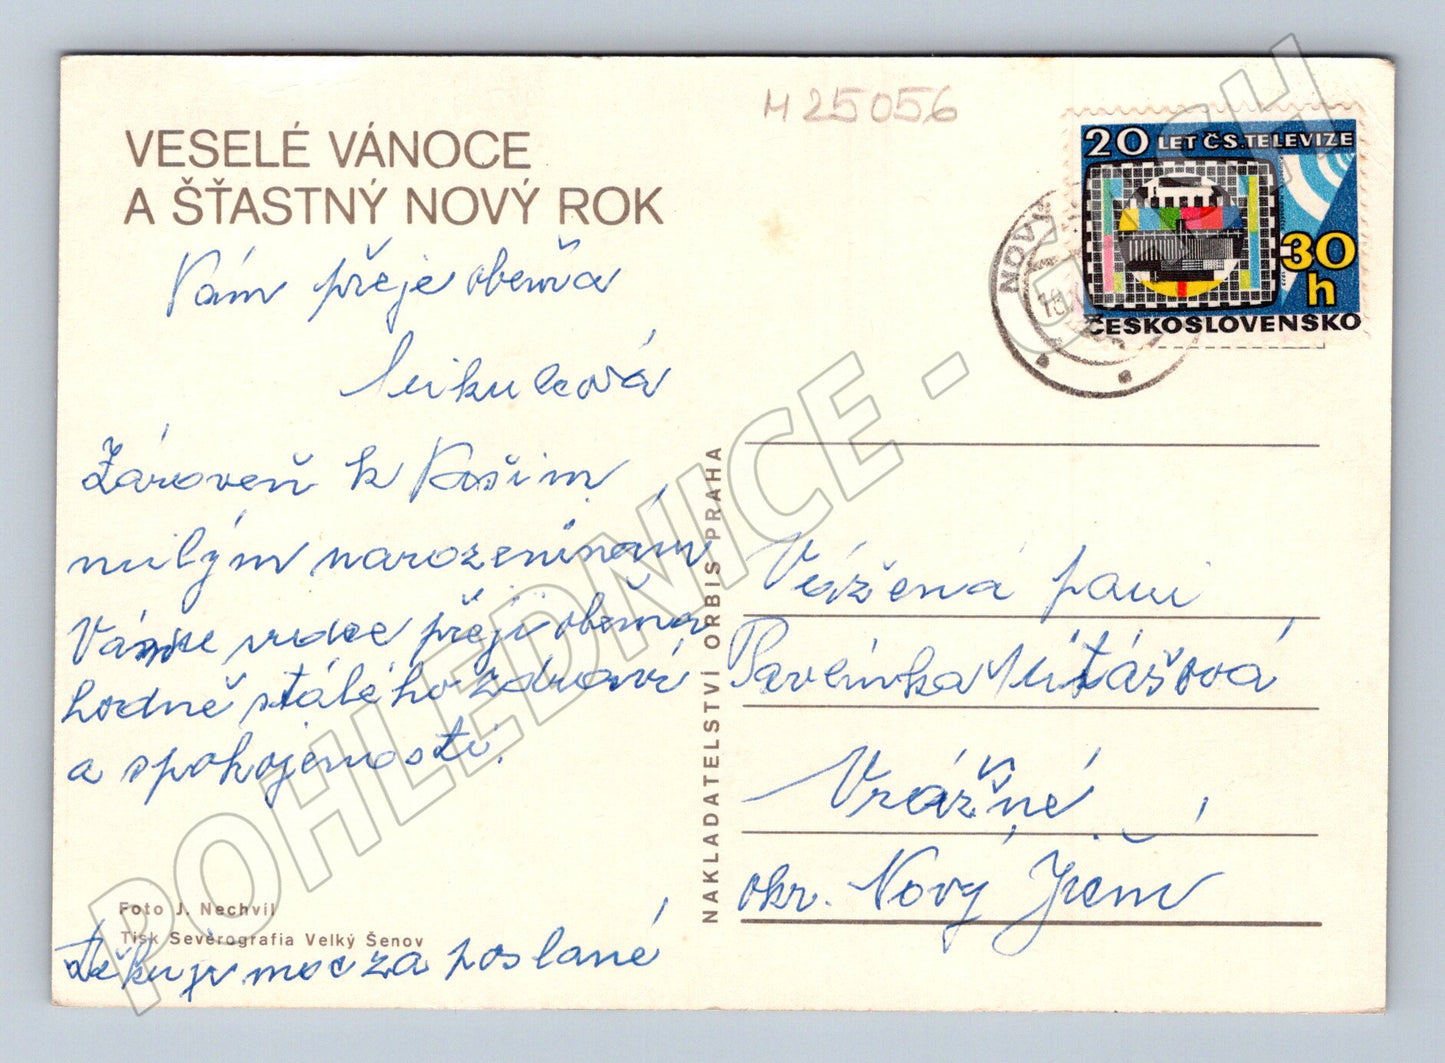 VESELÉ VÁNOCE
A ŠŤASTNÝ NOVÝ ROK
Vám přeje
Mikulcová
Zároveň k Vašim
milým narozeninám
srdce přeji
hodně stálého zdraví
a spokojenosti.
Foto J. Nechvíl
Tisk Severografia Velký Šenov
Děkuji moc za poslané
NAKLADATELSTVÍ ORBIS PRAHA
M 25056
20 LET ČS. TELEVIZE
30
h
ČESKOSLOVENSKO
NOVÝ
Vážená paní
Pavlínka Mítášová
Vrážné
okr. Nový Jičín
POHLEDNICE - CASH